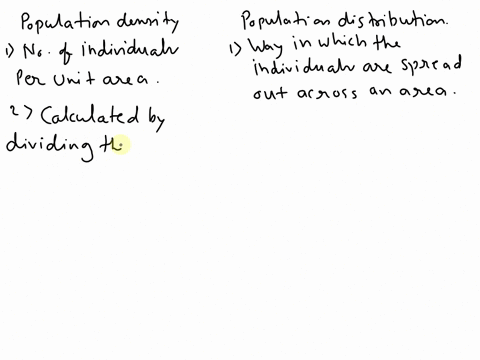 Population density
1) No. of individuals
Per unit area.
2) Calculated by
dividing th
Population distribution.
1) Way in which the
individuals are spread
out across an area.